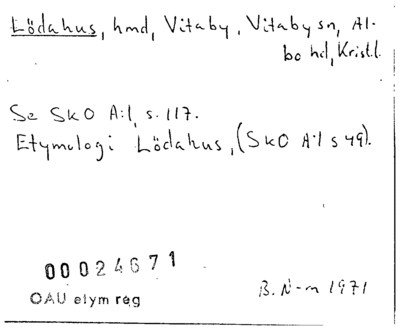 Lödahus, hmd, Vitaby, Vitaby sn, Al-
bo hd, Krist.l.
Se SkO A:1, s. 117.
Etymologi Lödahus, (SkO A:1 s 49).
00024671
OAU etym reg
B. N-m 1971